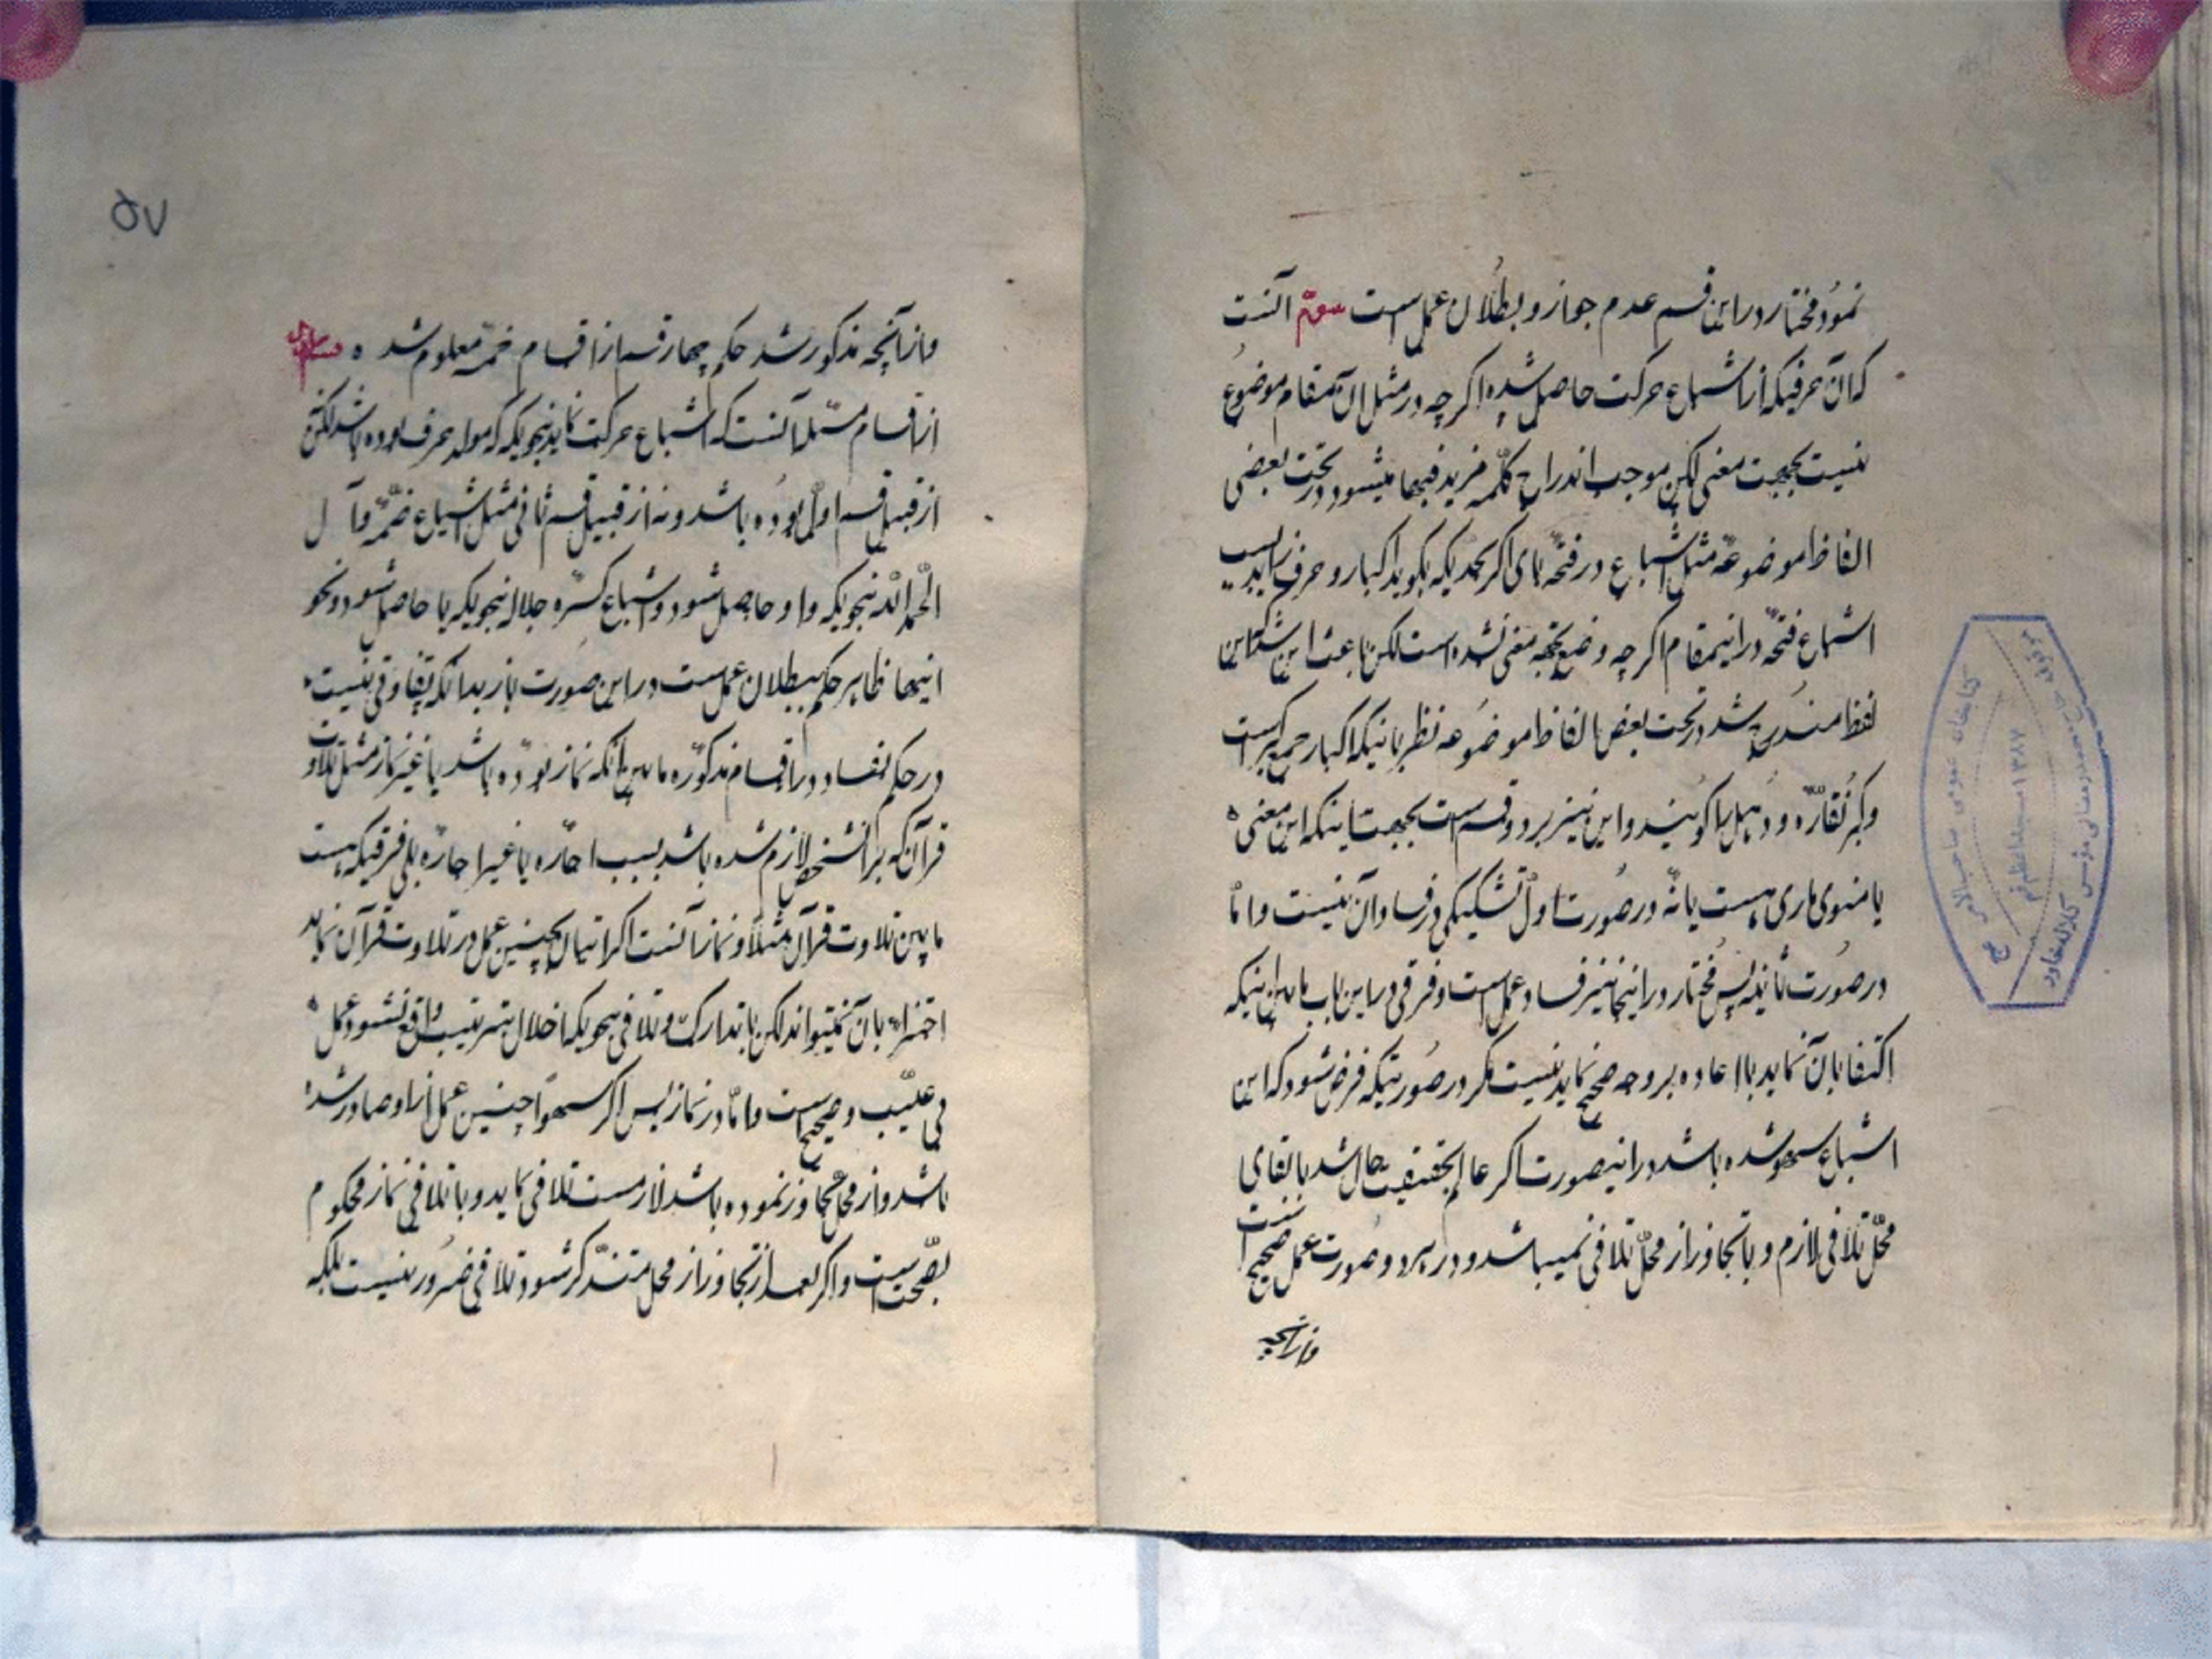 نمود مختار در این قسم عدم جواز و بطلان عمل است سوّم آنست
که آن حرفیکه از اشباع حرکت حاصل شده اگرچه در مثل آن مقام موضوع
نیست بجهت معنی لکن موجب اندراج کلمه مزید فیها میشود در تحت بعضی
الفاظ موضوعه مثل اشباع در فتحه بای اکبر بحدّیکه بگوید اکبار و حرف زاید بسبب
اشباع فتحه در اینمقام اگرچه وضع بجهة معنی نشده است لکن باعث این شد که این
لفظ مندرج شد در تحت بعض الفاظ موضوعه نظر باینکه اکبار جمع کبر است
و کبر نقّاره و دهل را گویند و این نیز بر دو قسم است بجهت اینکه این معنی
یا منوی قاری هست یا نه در صورت اول تشکیکی در فساد آن نیست و امّا
در صورت ثانیه پس مختار در اینجا نیز فساد عمل است و فرقی در این باب مابین اینکه
اکتفا بآن نماید یا اعاده بر وجه صحیح نماید نیست مگر در صورتیکه فرض شود که این
اشباع سهواً شده باشد در اینصورت اگر عالم بحقیقت حال شد با بقای
محلّ تلافی لازم و با تجاوز از محلّ تلافی نمیباشد و در هر دو صورت عمل صحیح است
و از آنچه
۵۷
و از آنچه مذکور شد حکم چهار قسم از اقسام خمسه معلوم شد
از اقسام مسئله آنست که اشباع حرکت نماید بنحویکه مولد حرف بوده باشد لکن نه
از قبیل قسم اول بوده باشد و نه از قبیل قسم ثانی مثل اشباع ضمّه دال
الحمد لله بنحویکه واو حاصل شود و اشباع کسره جلاله بنحویکه یا حاصل شود و نحو
اینها ظاهر حکم ببطلان عمل است در این صورت باز بدانکه تفاوتی نیست
در حکم بفساد در اقسام مذکوره مابین آنکه نماز بوده باشد یا غیر نماز مثل تلاوت
قرآن که بر آنشخص لازم شده باشد بسبب اجاره یا غیر اجاره بلی فرقیکه هست
مابین تلاوت قرآن مثلاً و نماز آنست اگر اتیان بچنین عمل در تلاوت قرآن نماید
اجتزاء بآن نمیتواند لکن با تدارک و تلافی بنحویکه اخلال بترتیب واقع نشود عمل
بی عیب و صحیح است و امّا در نماز پس اگر سهواً چنین عمل از او صادر شده
باشد و از محل تجاوز ننموده باشد لازمست تلافی نماید و با تلافی نماز محکوم
بصحّت است و اگر بعد از تجاوز از محل متذکّر شود تلافی ضرور نیست بلکه